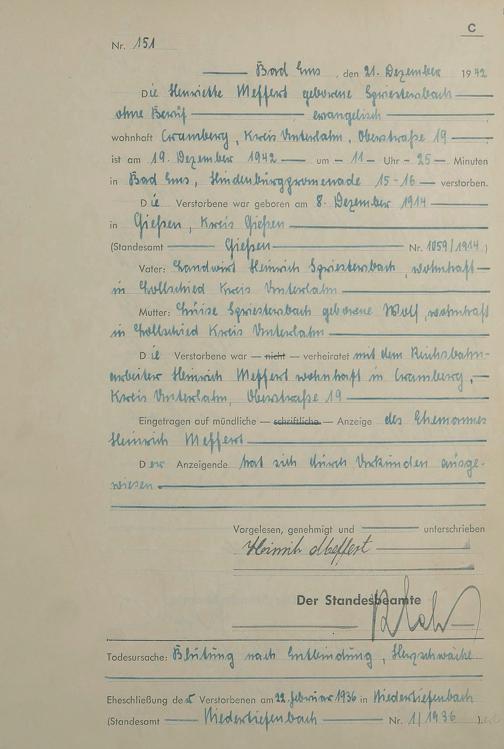 C
Nr. 151
Bad Ems, den 21. Dezember 1942
Die Henriette Meffert geborene Spriestersbach
ohne Beruf — evangelisch
wohnhaft Cramberg, Kreis Unterlahn, Oberstraße 19
ist am 19. Dezember 1942 — um — 11 — Uhr — 25 — Minuten
in Bad Ems, Hindenburgpromenade 15-16 — verstorben.
Die Verstorbene war geboren am 8. Dezember 1914
in Gießen, Kreis Gießen
(Standesamt — Gießen — Nr. 1059/1914.)
Vater: Landwirt Heinrich Spriestersbach, wohnhaft
in Lollschied Kreis Unterlahn
Mutter: Luise Spriestersbach geborene Wolf, wohnhaft
in Lollschied Kreis Unterlahn
Die Verstorbene war — nicht — verheiratet mit dem Reichsbahn-
arbeiter Heinrich Meffert wohnhaft in Cramberg,
Kreis Unterlahn, Oberstraße 19
Eingetragen auf mündliche — schriftliche — Anzeige des Ehemannes
Heinrich Meffert
Der Anzeigende hat sich durch Urkunden ausge-
wiesen.
Vorgelesen, genehmigt und — unterschrieben
Heinrich Meffert
Der Standesbeamte
Todesursache: Blutung nach Entbindung, Herzschwäche
Eheschließung der Verstorbenen am 22. Februar 1936 in Niedertiefenbach
(Standesamt — Niedertiefenbach — Nr. 1/1936).